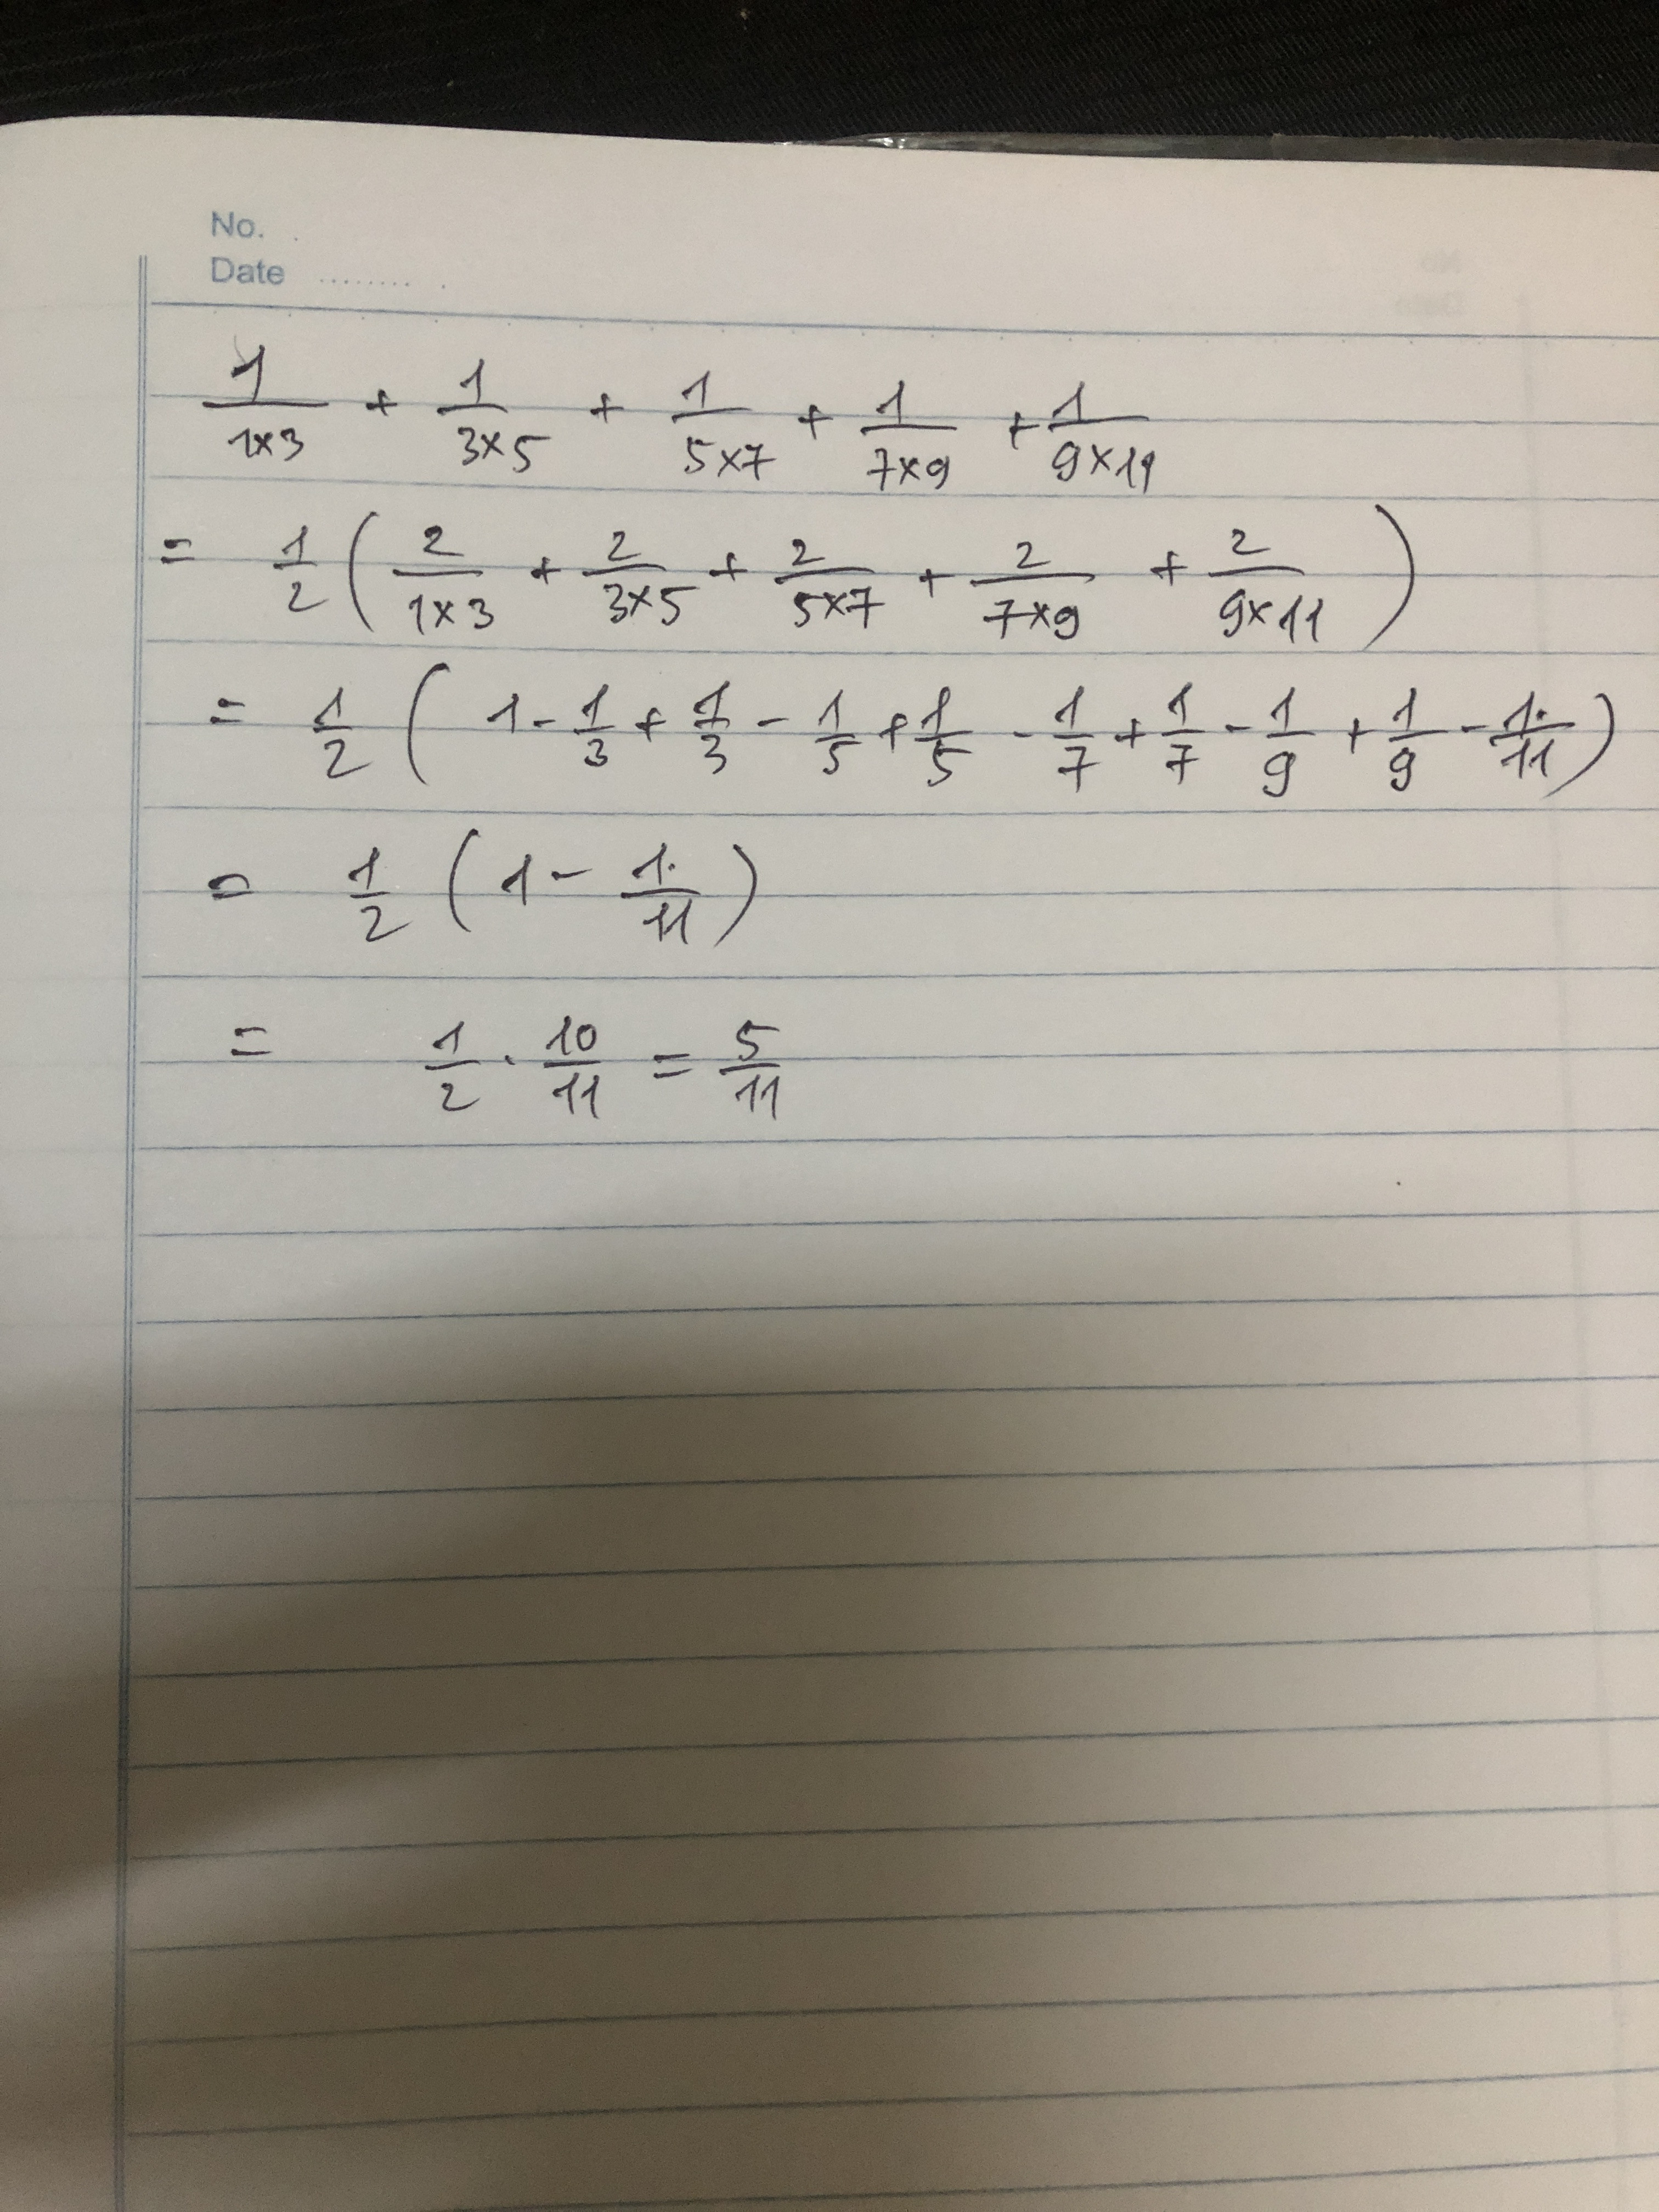 No.
Date ........
1/(1×3) + 1/(3×5) + 1/(5×7) + 1/(7×9) + 1/(9×11)
= 1/2 ( 2/(1×3) + 2/(3×5) + 2/(5×7) + 2/(7×9) + 2/(9×11) )
= 1/2 ( 1 - 1/3 + 1/3 - 1/5 + 1/5 - 1/7 + 1/7 - 1/9 + 1/9 - 1/11 )
= 1/2 ( 1 - 1/11 )
= 1/2 . 10/11 = 5/11